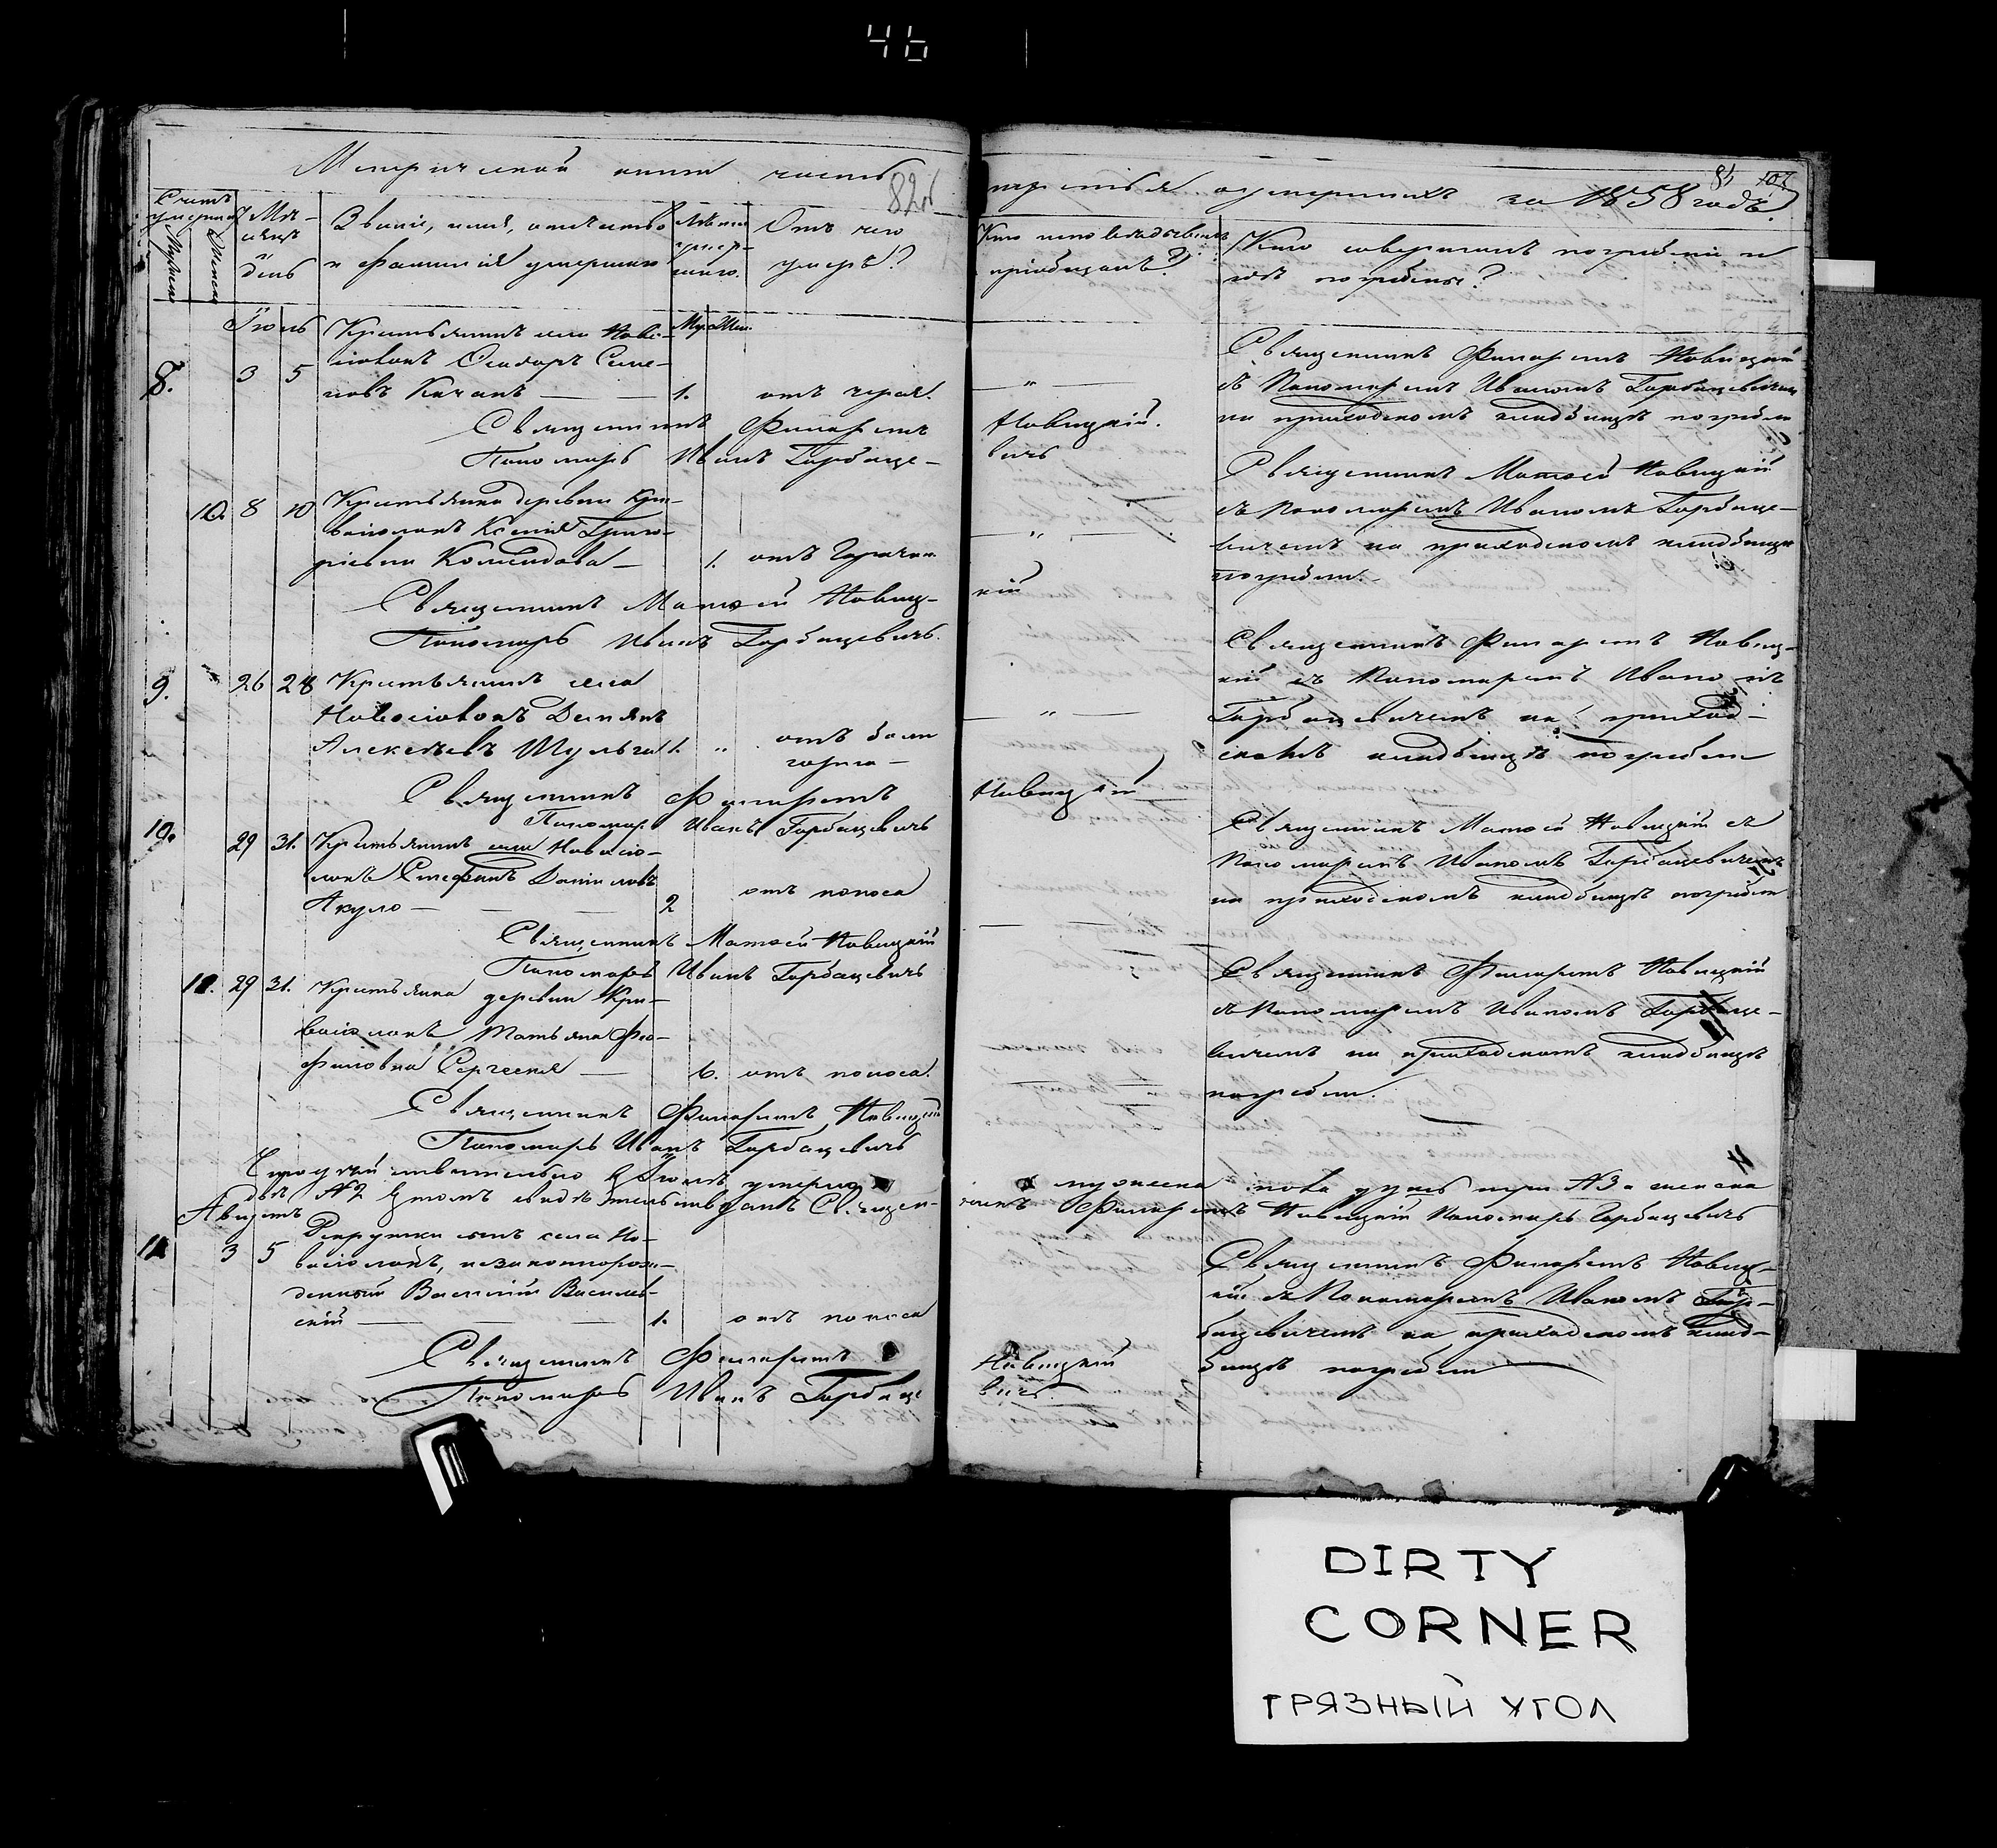 46
Метрической книги часть
82об
третья о умершихъ за 1858 годъ.
84 107
Счетъ умершихъ
Мужеска
Женска
Мѣсяцъ и день
Званіе, имя, отчество
и фамилія умершаго
Лѣта умершаго.
Отъ чего
умеръ?
Кто исповѣдывалъ и
пріобщалъ?
Кто совершалъ погребеніе и
гдѣ погребены?
Іюль
Муж. Жен.
8.
3 5
Крестьянинъ села Ново-
сіолокъ Ѳеодоръ Семе-
новъ Качанъ — 1. отъ
— „ —
Священникъ Филаретъ Новицкій
съ Пономаремъ Иваномъ Горбацевичемъ
на приходскомъ кладбищѣ погребли
Священникъ Филаретъ Новицкій.
Пономарь Иванъ Горбаце-вичъ
10. 8 10
Крестьянка деревни Кри-
восіолокъ Ксенія Григо-
ріевна — 1. отъ Горячки
— „ —
Священникъ Матѳей Новицкій
съ Пономаремъ Иваномъ Горбаце-
вичемъ на приходскомъ кладбищѣ
погребли.
Священникъ Матѳей Новиц-кій
Пономарь Иванъ Горбацевичъ.
9. 26 28
Крестьянинъ села
Новосіолокъ Демьянъ
Алексѣевъ Шульга 1. „ отъ боли
горла —
— „ —
Священникъ Филаретъ Новиц-
кій съ Пономаремъ Иваномъ
Горбацевичемъ на приход-
скомъ кладбищѣ погребли
Священникъ Филаретъ Новицкій
Пономарь Иванъ Горбацевичъ
10. 29 31.
Крестьянинъ села Новосіо-
локъ Стефанъ Даниловъ
Акуло — 2 отъ поноса
—
Священникъ Матѳей Новицкій съ
Пономаремъ Иваномъ Горбацевичемъ
на приходскомъ кладбищѣ погребли
Священникъ Матѳей Новицкій
Пономарь Иванъ Горбацевичъ
11. 29 31.
Крестьянка деревни Кри-
восіолокъ Татьяна Фео-
филовна — 6. отъ поноса.
Священникъ Филаретъ Новицкій
съ Пономаремъ Иваномъ Горбаце-
вичемъ на приходскомъ кладбищѣ
погребли.
Священникъ Филаретъ Новицкій
Пономарь Иванъ Горбацевичъ
Что дѣйствительно въ Іюлѣ умерло мужеска пола душъ три №3 а женска
двѣ №2 въ томъ свидѣтельствуемъ Священ-никъ Филаретъ Новицкій Пономарь Горбацевичъ
Августъ
11 3 5
Рекрутки сынъ села Но-
восіолокъ, незаконнорож-
денный Василій Василев-
скій — 1. отъ поноса
Священникъ Филаретъ Новиц-
кій съ Пономаремъ Иваномъ Гор-
бацевичемъ на приходскомъ клад-
бищѣ погребли
Священникъ Филаретъ Новицкій
Пономарь Иванъ Горбаце-вичъ.
DIRTY
CORNER
ГРЯЗНЫЙ УГОЛ